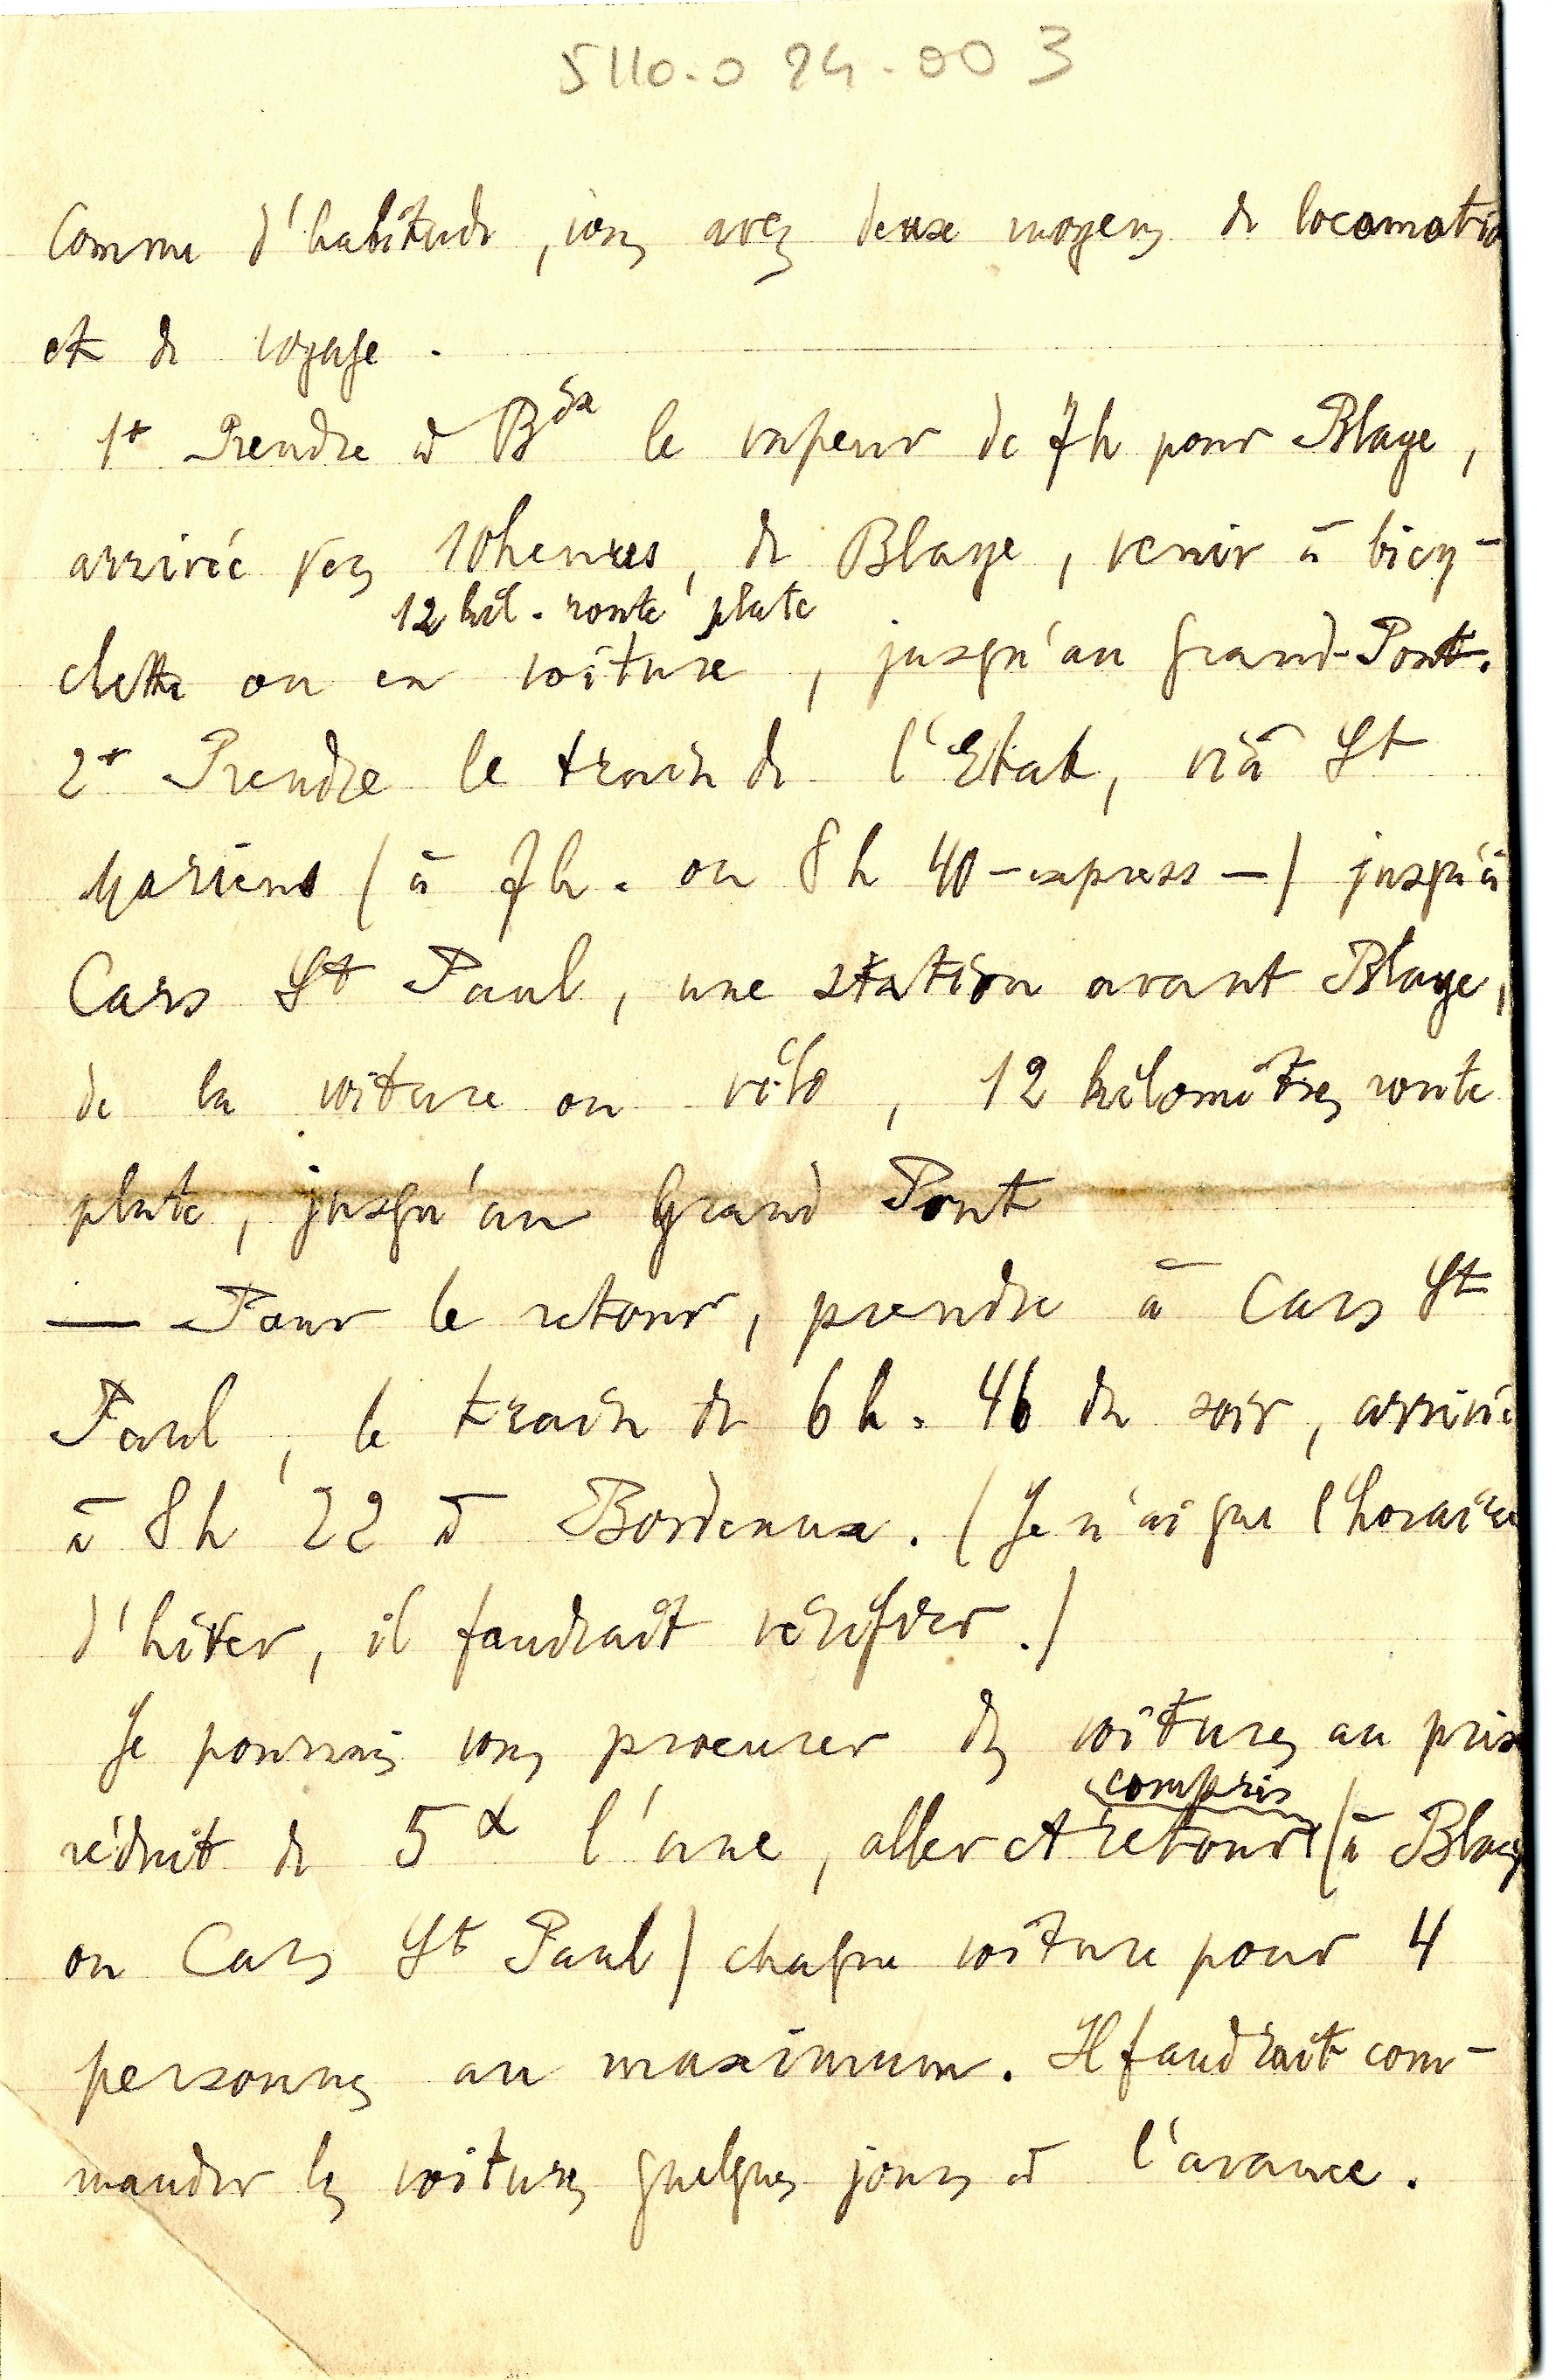 5110-024-003
Comme d'habitude, vous avez deux moyens de locomotio
et de voyage.
1º Prendre à Bdx le vapeur de 7h pour Blaye,
arrivée vers 10heures, de Blaye, venir à bicy-
12 kil. route plate
clette ou en voiture, jusqu'au Grand-Pont.
2º Prendre le train de l'Etat, viâ St
Mariens (à 7h. ou 8h 40 - express -) jusqu'à
Cars St Paul, une station avant Blaye,
de la voiture ou vélo, 12 kilomètres route
plate, jusqu'au Grand Pont
— Pour le retour, prendre à Cars St
Paul, le train de 6h. 46 du soir, arrivée
à 8h 22 à Bordeaux. (Je n'ai que l'horaire
d'hiver, il faudrait vérifier.)
Je pourrais vous procurer des voitures au prix
compris
réduit de 5 f l'une, aller et retour (à Blaye
ou Cars St Paul) chaque voiture pour 4
personnes au maximum. Il faudrait com-
mander les voitures quelques jours à l'avance.